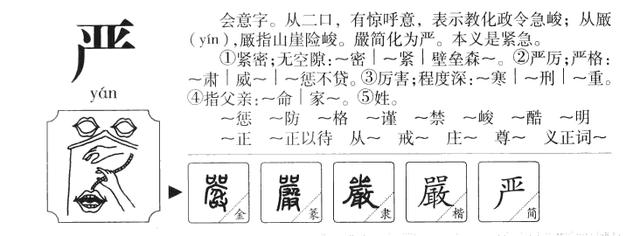 严
yán
会意字。从二口，有惊呼意，表示教化政令急峻；从厰
(yín)，厰指山崖险峻。嚴简化为严。本义是紧急。
①紧密；无空隙：～密｜～紧｜壁垒森～。②严厉；严格：
～肃｜威～｜～惩不贷。③厉害；程度深：～寒｜～刑｜～重。
④指父亲：～命｜家～。⑤姓。
～惩 ～防 ～格 ～谨 ～禁 ～峻 ～酷 ～明
～正 ～正以待 从～ 戒～ 庄～ 尊～ 义正词～
嚴金 嚴篆 嚴隶 嚴楷 严简